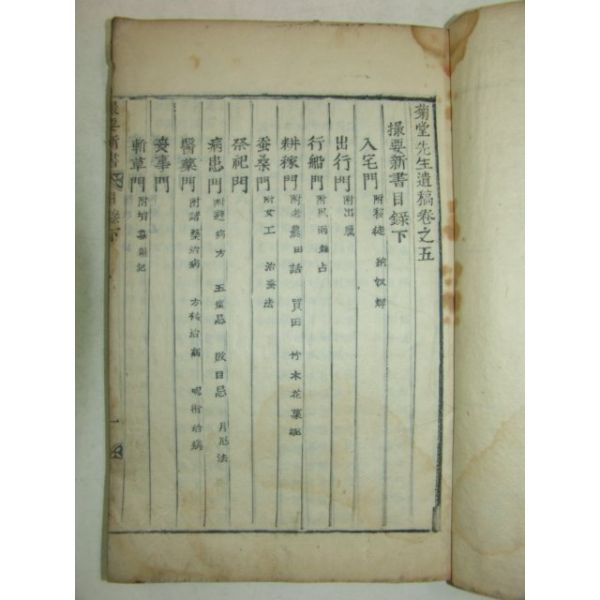 菊堂先生遺稿卷之五
撮要新書目錄下
入宅門 附移徙 納奴婢
出行門 附出屋
行船門 附風雨雜占
耕稼門 附老農田話 買田 竹木花菓
蚕桑門 附女工 治蚕法
祭祀門
病患門 附避病方 忌 月厄法
醫藥門 附諸 治病 方 治病 呪術治病
喪事門
斬草門 附 墓 記
撮要新書 目錄下 一